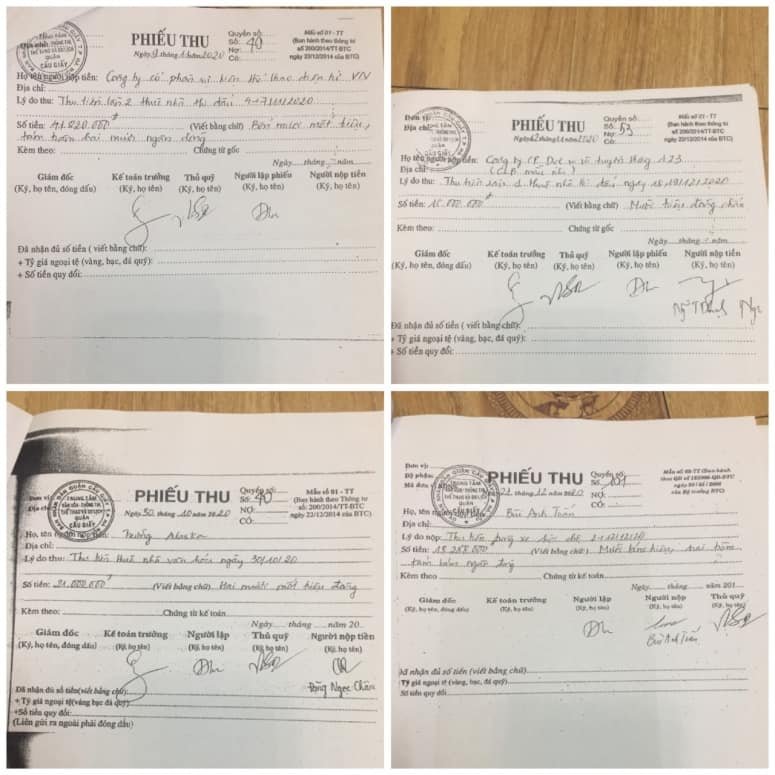 PHIẾU THU
Quyển số:
Số: 40
Nợ:
Có:
Mẫu số 01 - TT
(Ban hành theo thông tư
số 200/2014/TT-BTC
ngày 22/12/2014 của BTC)
TRUNG TÂM
CẦU GIẤY
Địa chỉ:
Họ tên người nộp tiền: Công ty cổ phần
Địa chỉ:
Lý do thu: Thu tiền lần 2 Thuê nhà thi đấu
Số tiền: 41.820.000đ (Viết bằng chữ) Bốn mươi mốt triệu,
tám trăm hai mươi ngàn đồng
Kèm theo: Chứng từ gốc
Ngày tháng năm
Giám đốc Kế toán trưởng Thủ quỹ Người lập phiếu Người nộp tiền
(Ký, họ tên, đóng dấu) (Ký, họ tên) (Ký, họ tên) (Ký, họ tên) (Ký, họ tên)
Đã nhận đủ số tiền ( viết bằng chữ):
+ Tỷ giá ngoại tệ (vàng, bạc, đá quý):
+ Số tiền quy đổi:
Đơn vị:
Địa chỉ:
PHIẾU THU
Quyển số:
Số: 53
Nợ:
Có:
Mẫu số 01 - TT
(Ban hành theo thông tư
số 200/2014/TT-BTC
ngày 22/12/2014 của BTC)
Họ tên người nộp tiền: Công ty CP
Địa chỉ:
Lý do thu: Thu tiền Thuê nhà thi đấu ngày
Số tiền: (Viết bằng chữ) Mười triệu đồng chẵn
Kèm theo: Chứng từ gốc
Ngày tháng năm
Giám đốc Kế toán trưởng Thủ quỹ Người lập phiếu Người nộp tiền
(Ký, họ tên, đóng dấu) (Ký, họ tên) (Ký, họ tên) (Ký, họ tên) (Ký, họ tên)
Đã nhận đủ số tiền ( viết bằng chữ):
+ Tỷ giá ngoại tệ (vàng, bạc, đá quý):
+ Số tiền quy đổi:
Đơn vị:
Địa chỉ:
TRUNG TÂM
VĂN HÓA - THÔNG TIN
THỂ THAO VÀ DU LỊCH
QUẬN
CẦU GIẤY
PHIẾU THU
Ngày 30 tháng 10 năm 2020
Quyển số:
Số: 40
NỢ:
CÓ:
Mẫu số 01 - TT
(Ban hành theo Thông tư
số: 200/2014/TT-BTC
22/12/2014 của BTC)
Họ, tên người nộp tiền: Trường Alaska
Địa chỉ:
Lý do thu: Thu tiền Thuê nhà văn hóa ngày 30/10/20
Số tiền: 21.000.000đ (Viết bằng chữ) Hai mươi mốt triệu đồng
Kèm theo: Chứng từ kế toán
Ngày tháng năm 20
Giám đốc Kế toán trưởng Người lập Thủ quỹ Người nộp tiền
(Ký, họ tên, đóng dấu) (Ký, họ tên) (Ký, họ tên) (Ký, họ tên) (Ký, họ tên)
Đặng Ngọc Châu
Đã nhận đủ số tiền(viết bằng chữ)
+Tỷ giá ngoại tệ(vàng bạc đá quý)
+Số tiền quy đổi:
(Liên gửi ra ngoài phải đóng dấu)
Đơn vị:
Bộ phận
Mã đơn vị
PHIẾU THU
12 2020
Quyển số:
Số:
NỢ:
CÓ:
Mẫu số
Họ, tên Bùi Anh Tuấn
Địa chỉ:
Lý do nộp: Thu tiền
Số tiền: (Viết bằng chữ) Mười tám triệu, hai trăm
tám đồng
Kèm theo Chứng từ kế toán
Ngày tháng năm 201
Giám đốc Kế toán trưởng Người lập Người nộp Thủ quỹ
(Ký, họ tên, đóng dấu) (Ký, họ tên) (Ký, họ tên) (Ký, họ tên) (Ký, họ tên)
Bùi Anh Tuấn
Đã nhận đủ số tiền (viết bằng chữ)
Tỷ giá ngoại tệ (vàng, bạc, đá quý)
Số tiền quy đổi: